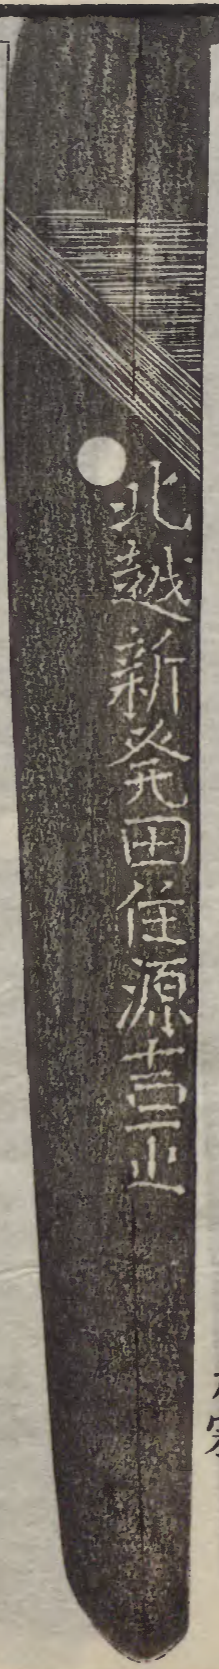 北越新発田住源吉正